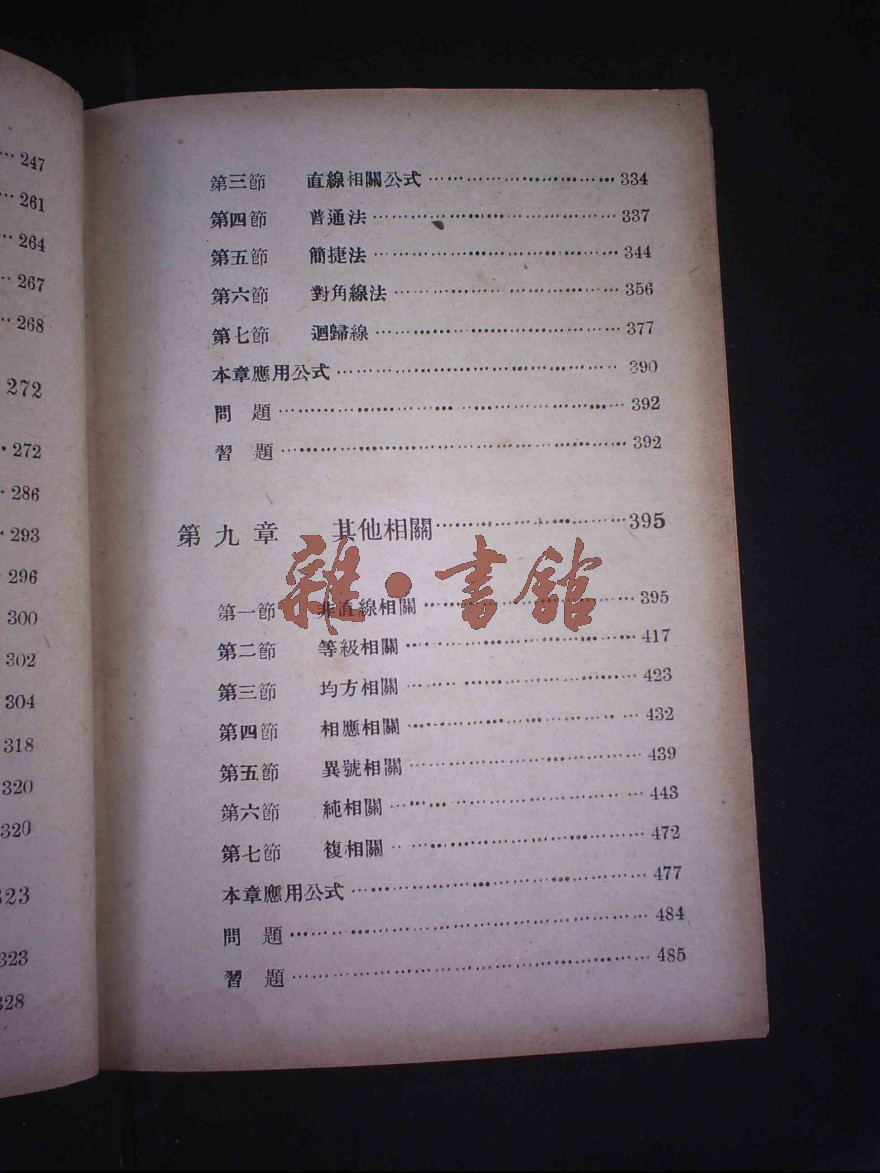 247
261
264
267
268
272
272
286
293
296
300
302
304
318
320
320
323
323
328
第三節 直線相關公式 334
第四節 普通法 337
第五節 簡捷法 344
第六節 對角線法 356
第七節 迴歸線 377
本章應用公式 390
問題 392
習題 392
第九章 其他相關 395
雜·書館
第一節 非直線相關 395
第二節 等級相關 417
第三節 均方相關 423
第四節 相應相關 432
第五節 異號相關 439
第六節 純相關 443
第七節 複相關 472
本章應用公式 477
問題 484
習題 485